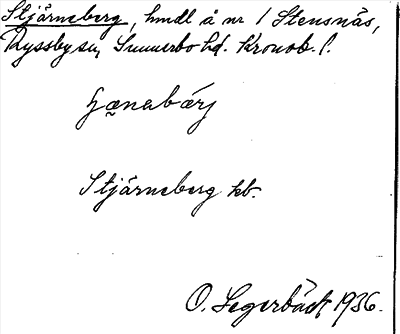 Stjärneberg, hmdl å nr 1 Stensnäs,
Ryssby sn, Sunnerbo hd. Kronob. l.
Stjärneberg kb.
O. Segerbäck 1936.